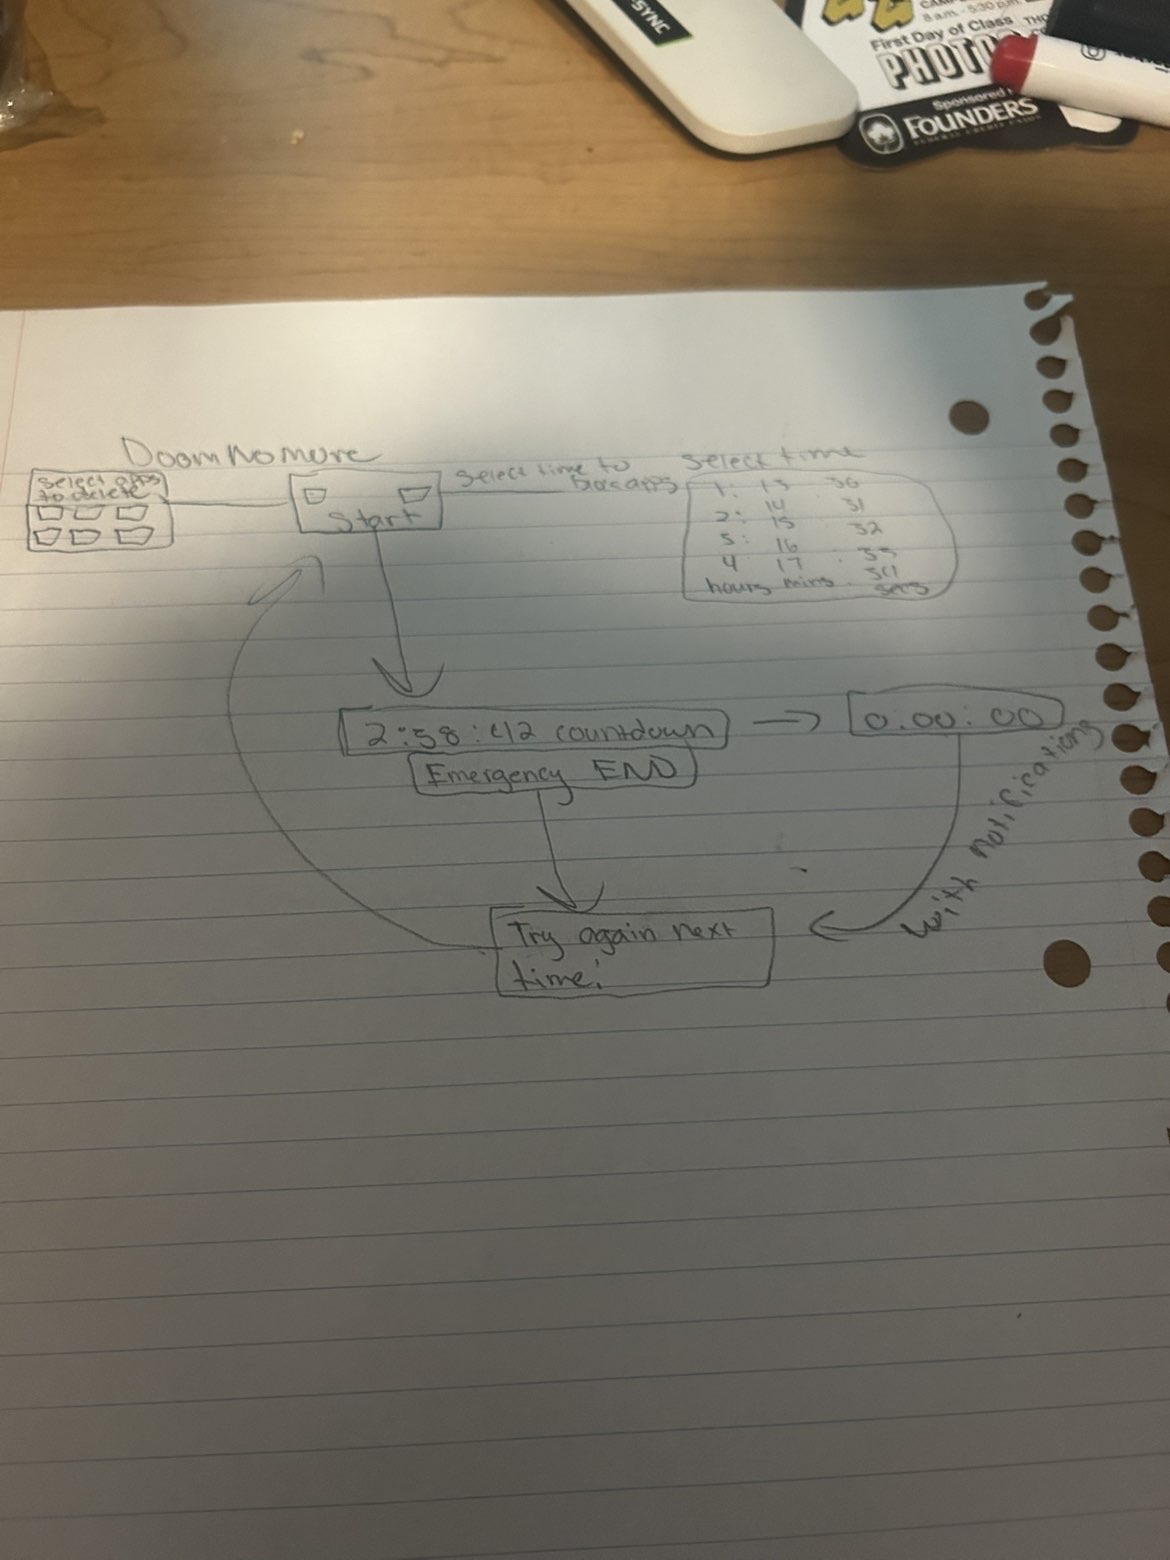 SYNC
8 a.m. - 5:30 p.m.
First Day of Class
Sponsored
FOUNDERS
Doom No more
Select apps
to delete
Start
Select time to
apps
Select time
1: 13 30
14 31
2: 15 32
3: 16 33
4 17 34
hours mins secs
2:58:42 countdown
0:00:00
Emergency END
with notifications
Try again next
time!